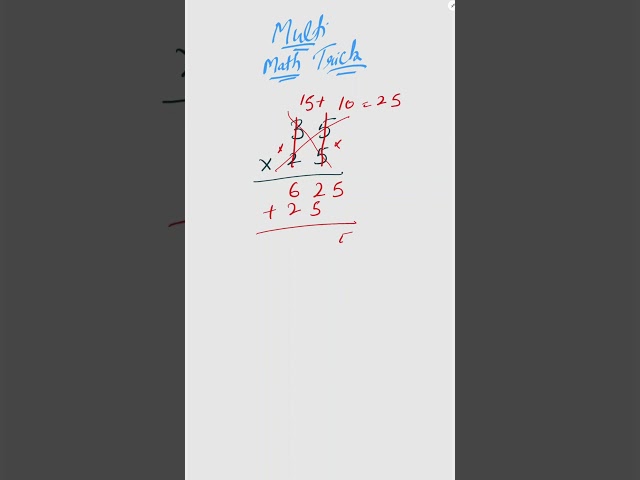 Multi
Math Trick
15+ 10 = 25
3 5
x 2 5
6 2 5
+ 2 5
5